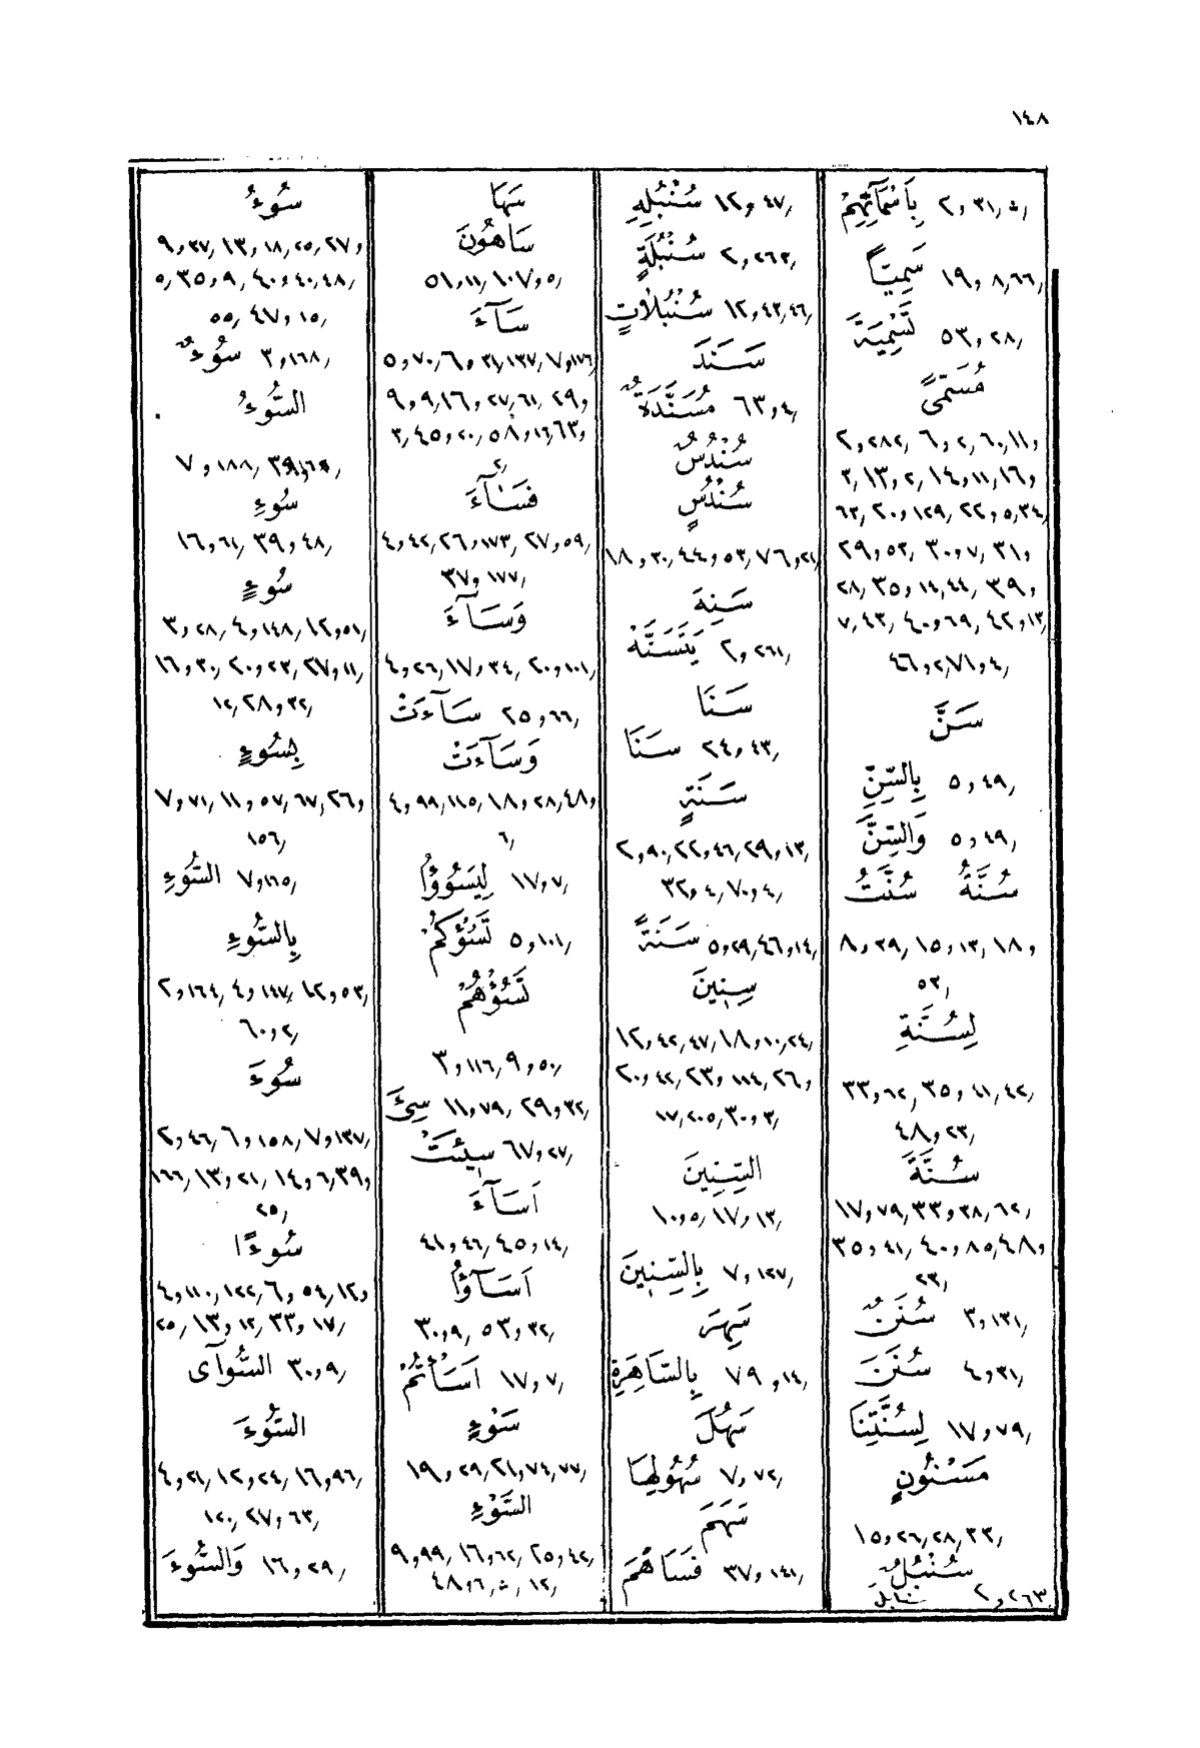 ١٤٨
بِأَسْمَآئِهِمْ ٢,٣١,
سَمِيًّا ١٩,٨,٦٦,
تَسْمِيَةَ ٥٣,٢٨,
مُسَمًّى
٢,٢٨٢, ٦,٢,٦٠, ١١,
٣, ١٣,٢, ١٤,١١, ١٦,
٦٣, ٢٠,١٢٩, ٢٢,٥,٣٤,
٢٩,٥٣, ٣٠,٧, ٣١,
٢٨, ٣٥,١٤,٤٤, ٣٩,
٧, ٤٣, ٤٠,٦٩, ٤٢,١٣,
٤٦,٢,٧١,٤,
سَنَّ
بِالسِّنِّ ٥,٤٩,
وَالسِّنَّ ٥,٤٩,
سُنَّةُ سُنَّتُ
٨,٣٩, ١٥,١٣, ١٨,
٥٣,
لِسُنَّةِ
٣٣,٦٢, ٣٥,٤١,٤٢,
٤٨,٢٣,
سُنَّةَ
١٧,٧٩, ٣٣,٣٨,٦٢,
٣٥,٤١, ٤٠,٨٥, ٤٨,
٢٣,
سُنَنٌ ٣,١٣١,
سُنَنَ ٤,٣١,
لِسُنَّتِنَا ١٧,٧٩,
مَسْنُونٍ
١٥,٢٦,٢٨,٣٣,
سُنْبُلٌ
سنابل ٢,٢٦٣
سُنْبُلِهِ ١٢,٤٧,
سُنْبُلَةٍ ٢,٢٦٢,
سُنْبُلَاتٍ ١٢,٤٣,٤٦,
سَنَدَ
مُسَنَّدَةٌ ٦٣,٤,
سُنْدُسٌ
سُنْدُسٍ
١٨,٣٠, ٤٤,٥٣, ٧٦,٢١,
سَنِهَ
يَتَسَنَّهْ ٢,٢٦١,
سَنَا
سَنَا ٢٤,٤٣,
سَنَةٍ
٢,٩٠, ٢٢,٤٦, ٢٩,١٣,
٣٢,٤, ٧٠,٤,
سَنَةً ٥,٢٩, ٤٦,١٤,
سِنِينَ
١٢,٤٢,٤٧, ١٨,١٠,٢٤,
٢٠,٤٢, ٢٣,١١٤, ٢٦,
١٧,٢٠٥, ٣٠,٣,
السِّنِينَ
١٠,٥, ١٧,١٣,
بِالسِّنِينَ ٧,١٢٧,
سَهِرَ
بِالسَّاهِرَةِ ٧٩,١٤,
سَهُلَ
سُهُولِهَا ٧,٧٢,
سَهَمَ
فَسَاهَمَ ٣٧,١٤١,
سَهَا
سَاهُونَ
٥١,١١, ١٠٧,٥,
سَآءَ
٥,٧٠, ٦,٣١,١٣٧, ٧,١٧٦,
٩,٩, ١٦,٢٧,٦١, ٢٩,
٣, ٤٥,٢٠, ٥٨,١٦, ٦٣,
٢,
فَسَآءَ
٤,٤٢, ٢٦,١٧٣, ٢٧,٥٩,
٣٧,١٧٧,
وَسَآءَ
٤,٢٦, ١٧,٣٤, ٢٠,١٠١,
سَآءَتْ ٢٥,٦٦,
وَسَآءَتْ
٤,٩٩,١١٥, ١٨,٢٨, ٤٨,
٦,
لِيَسُوؤُا ١٧,٧,
تَسُؤْكُمْ ٥,١٠١,
تَسُؤْهُمْ
٣,١١٦, ٩,٥٠,
سِيٓءَ ١١,٧٩, ٢٩,٣٢,
سِيٓئَتْ ٦٧,٢٧,
اَسَآءَ
٤١,٤٦, ٤٥,١٤,
اَسَآؤُا
٣٠,٩, ٥٣,٣٢,
اَسَأْتُمْ ١٧,٧,
سَوْءٍ
١٩,٢٩, ٢١,٧٤,٧٧,
السَّوْءِ
٩,٩٩, ١٦,٦٢, ٢٥,٤٢,
٤٨,٦, ١٢,
سُوءُ
٩,٣٧, ١٣,١٨,٢٥, ٢٧,
٥, ٣٥,٩, ٤٠,٤٠,٤٨,
٥٥, ٤٧,١٥,
سُوءٌ ٣,١٦٨,
السُّوءُ
٧,١٨٨, ٣٩,
سُوءِ
١٦,٦١, ٣٩,٤٨,
سُوءٍ
٣,٢٨, ٤,١٤٨, ١٢,٥١,
١٦,٣٠, ٢٠,٢٣, ٢٧,١١,
١٢, ٢٨,٣٢,
بِسُوءٍ
٧,٧١, ١١,٥٧,٦٧, ٢٦,
١٥٦,
السُّوءِ ٧,١٦٥,
بِالسُّوءِ
٢,١٦٤, ٤,١٤٧, ١٢,٥٣,
٦٠,٢,
سُوءَ
٢,٤٦, ٦,١٥٨, ٧,١٣٧,
١٦٦, ١٣,٢١, ١٤,٦, ٣٩,
٢٥,
سُوءًا
٤,١١٠,١٢٢, ٦,٥٤, ١٢,
٢٥, ١٣,١٢, ٣٣,١٧,
السُّوآى ٣٠,٩,
السُّوءَ
٤,٢١, ١٢,٢٤, ١٦,٩٦,
١٢٠, ٢٧,٦٣,
وَالسُّوءَ ١٦,٢٩,